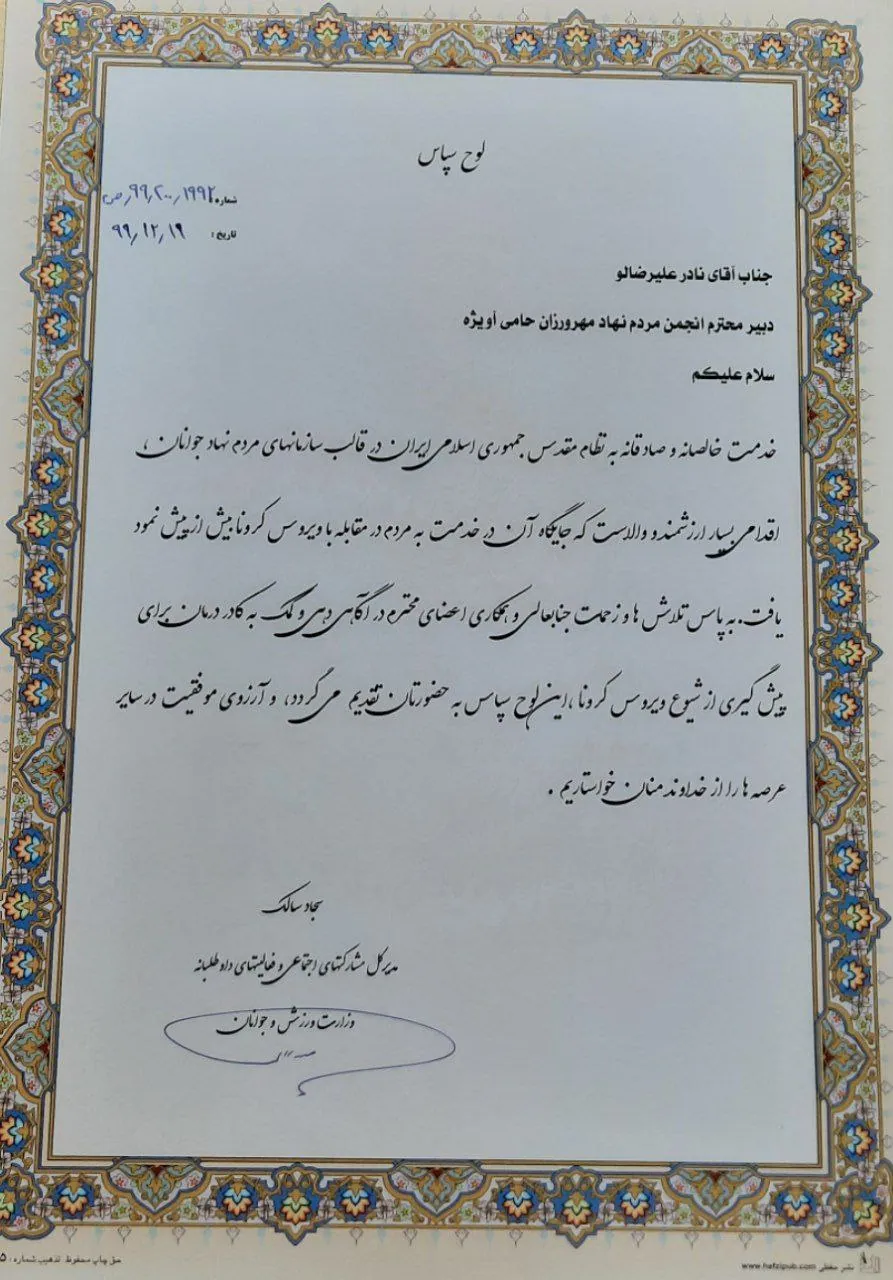 لوح سپاس
شماره: ۹۹٫۲۰۰٫۱۹۹۲٫ص
تاریخ: ۹۹٫۱۲٫۱۹
جناب آقای نادر علیرضالو
دبیر محترم انجمن مردم نهاد مهرورزان حامی آویژه
سلام علیکم
خدمت خالصانه و صادقانه به نظام مقدس جمهوری اسلامی ایران در قالب سازمانهای مردم نهاد جوانان ،
اقدامی بسیار ارزشمند و والاست که جایگاه آن در خدمت به مردم در مقابله با ویروس کرونا بیش از پیش نمود
یافت. به پاس تلاش ها و زحمت جنابعالی و همکاری اعضای محترم در آگاهی دهی و کمک به کادر درمان برای
پیش گیری از شیوع ویروس کرونا ،این لوح سپاس به حضورتان تقدیم می گردد، و آرزوی موفقیت در سایر
عرصه ها را از خداوند منان خواستاریم .
سجاد سالک
مدیرکل مشارکتهای اجتماعی و فعالیتهای داوطلبانه
وزارت ورزش و جوانان
نشر حفظی www.hafzipub.com
حق چاپ محفوظ تذهیب شماره: ۵